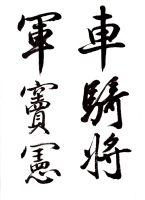 車騎將
軍竇憲